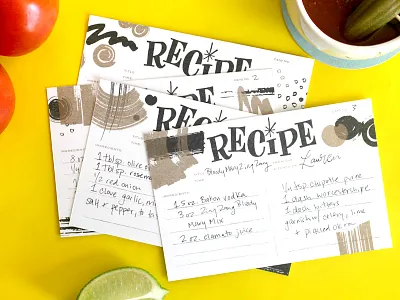 RECIPE
RECIPE
2
1 tblsp. olive o
1 tblsp. rosem
1/2 red onion
1 clove garlic, m
salt & pepper, to t
RECIPE
3
Bloody Mary Zing Zang
Lauren
INGREDIENTS:
1.5 oz. Baton vodka
3 oz. Zing Zang Bloody
Mary Mix
2 oz. clamato juice
1/4 tsp chipotle puree
1 dash worcestershire
1 dash bitters
garnish w/ celery, lime
+ pickled okra